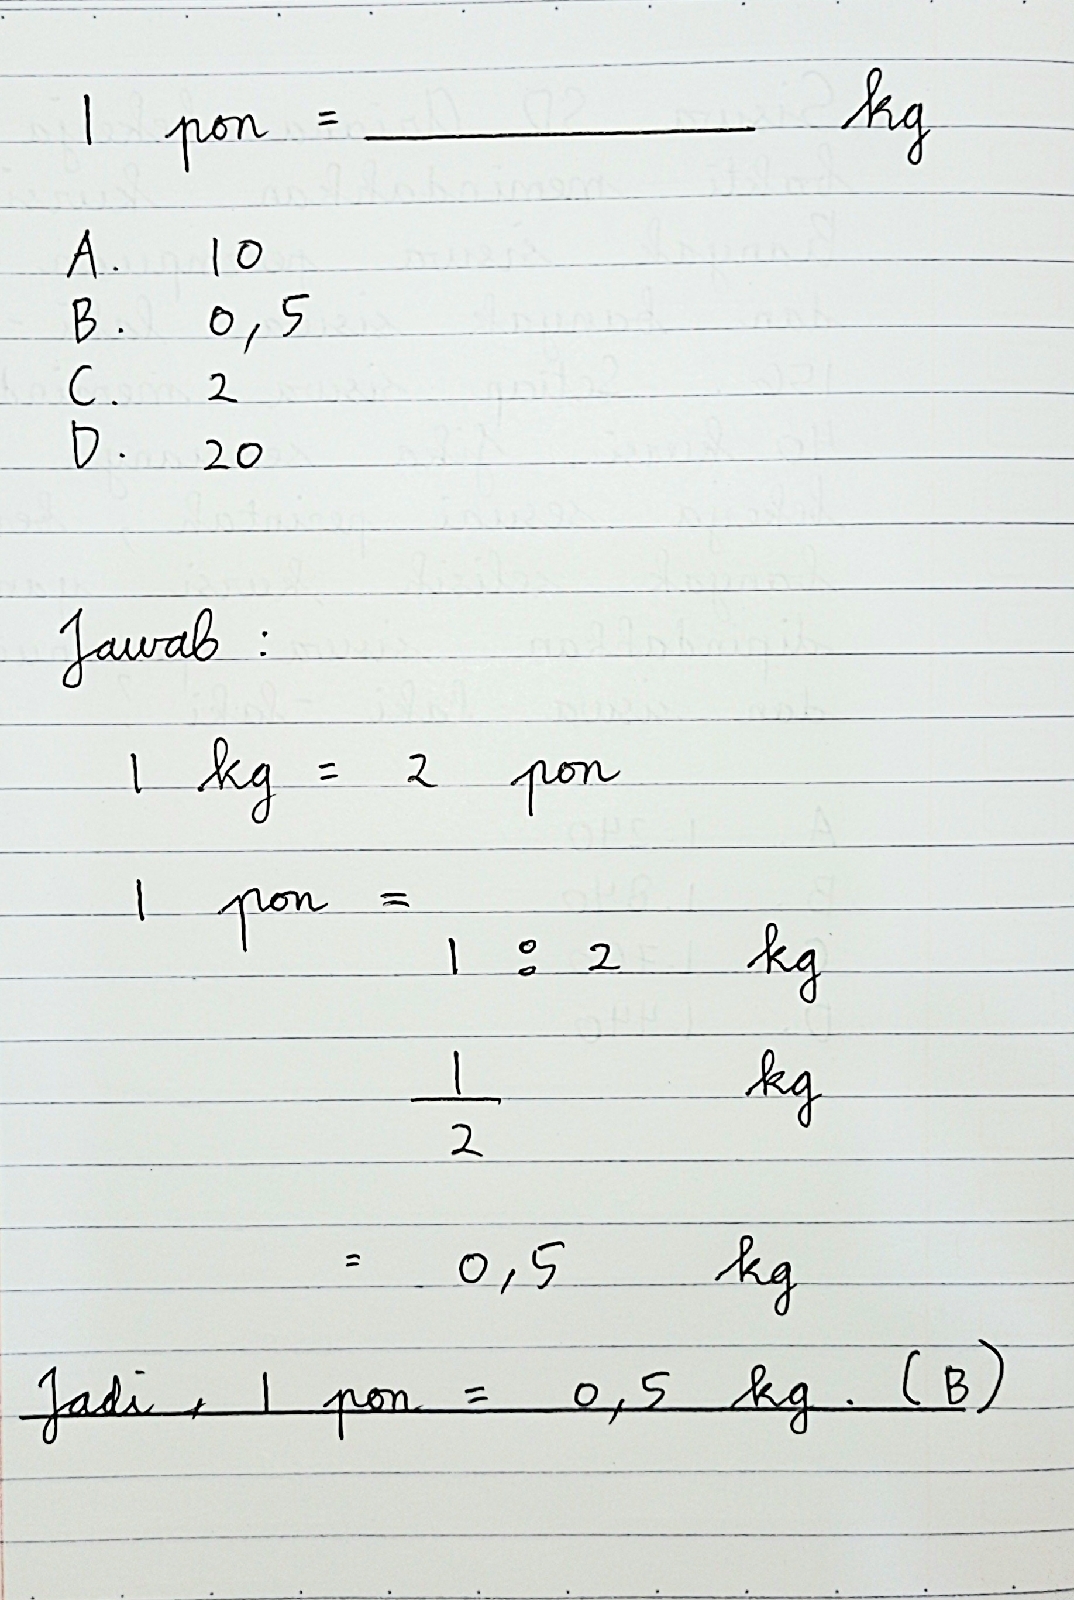 1 pon = ________ kg
A. 10
B. 0,5
C. 2
D. 20
Jawab :
1 kg = 2 pon
1 pon =
1 : 2 kg
1/2 kg
= 0,5 kg
Jadi, 1 pon = 0,5 kg. (B)